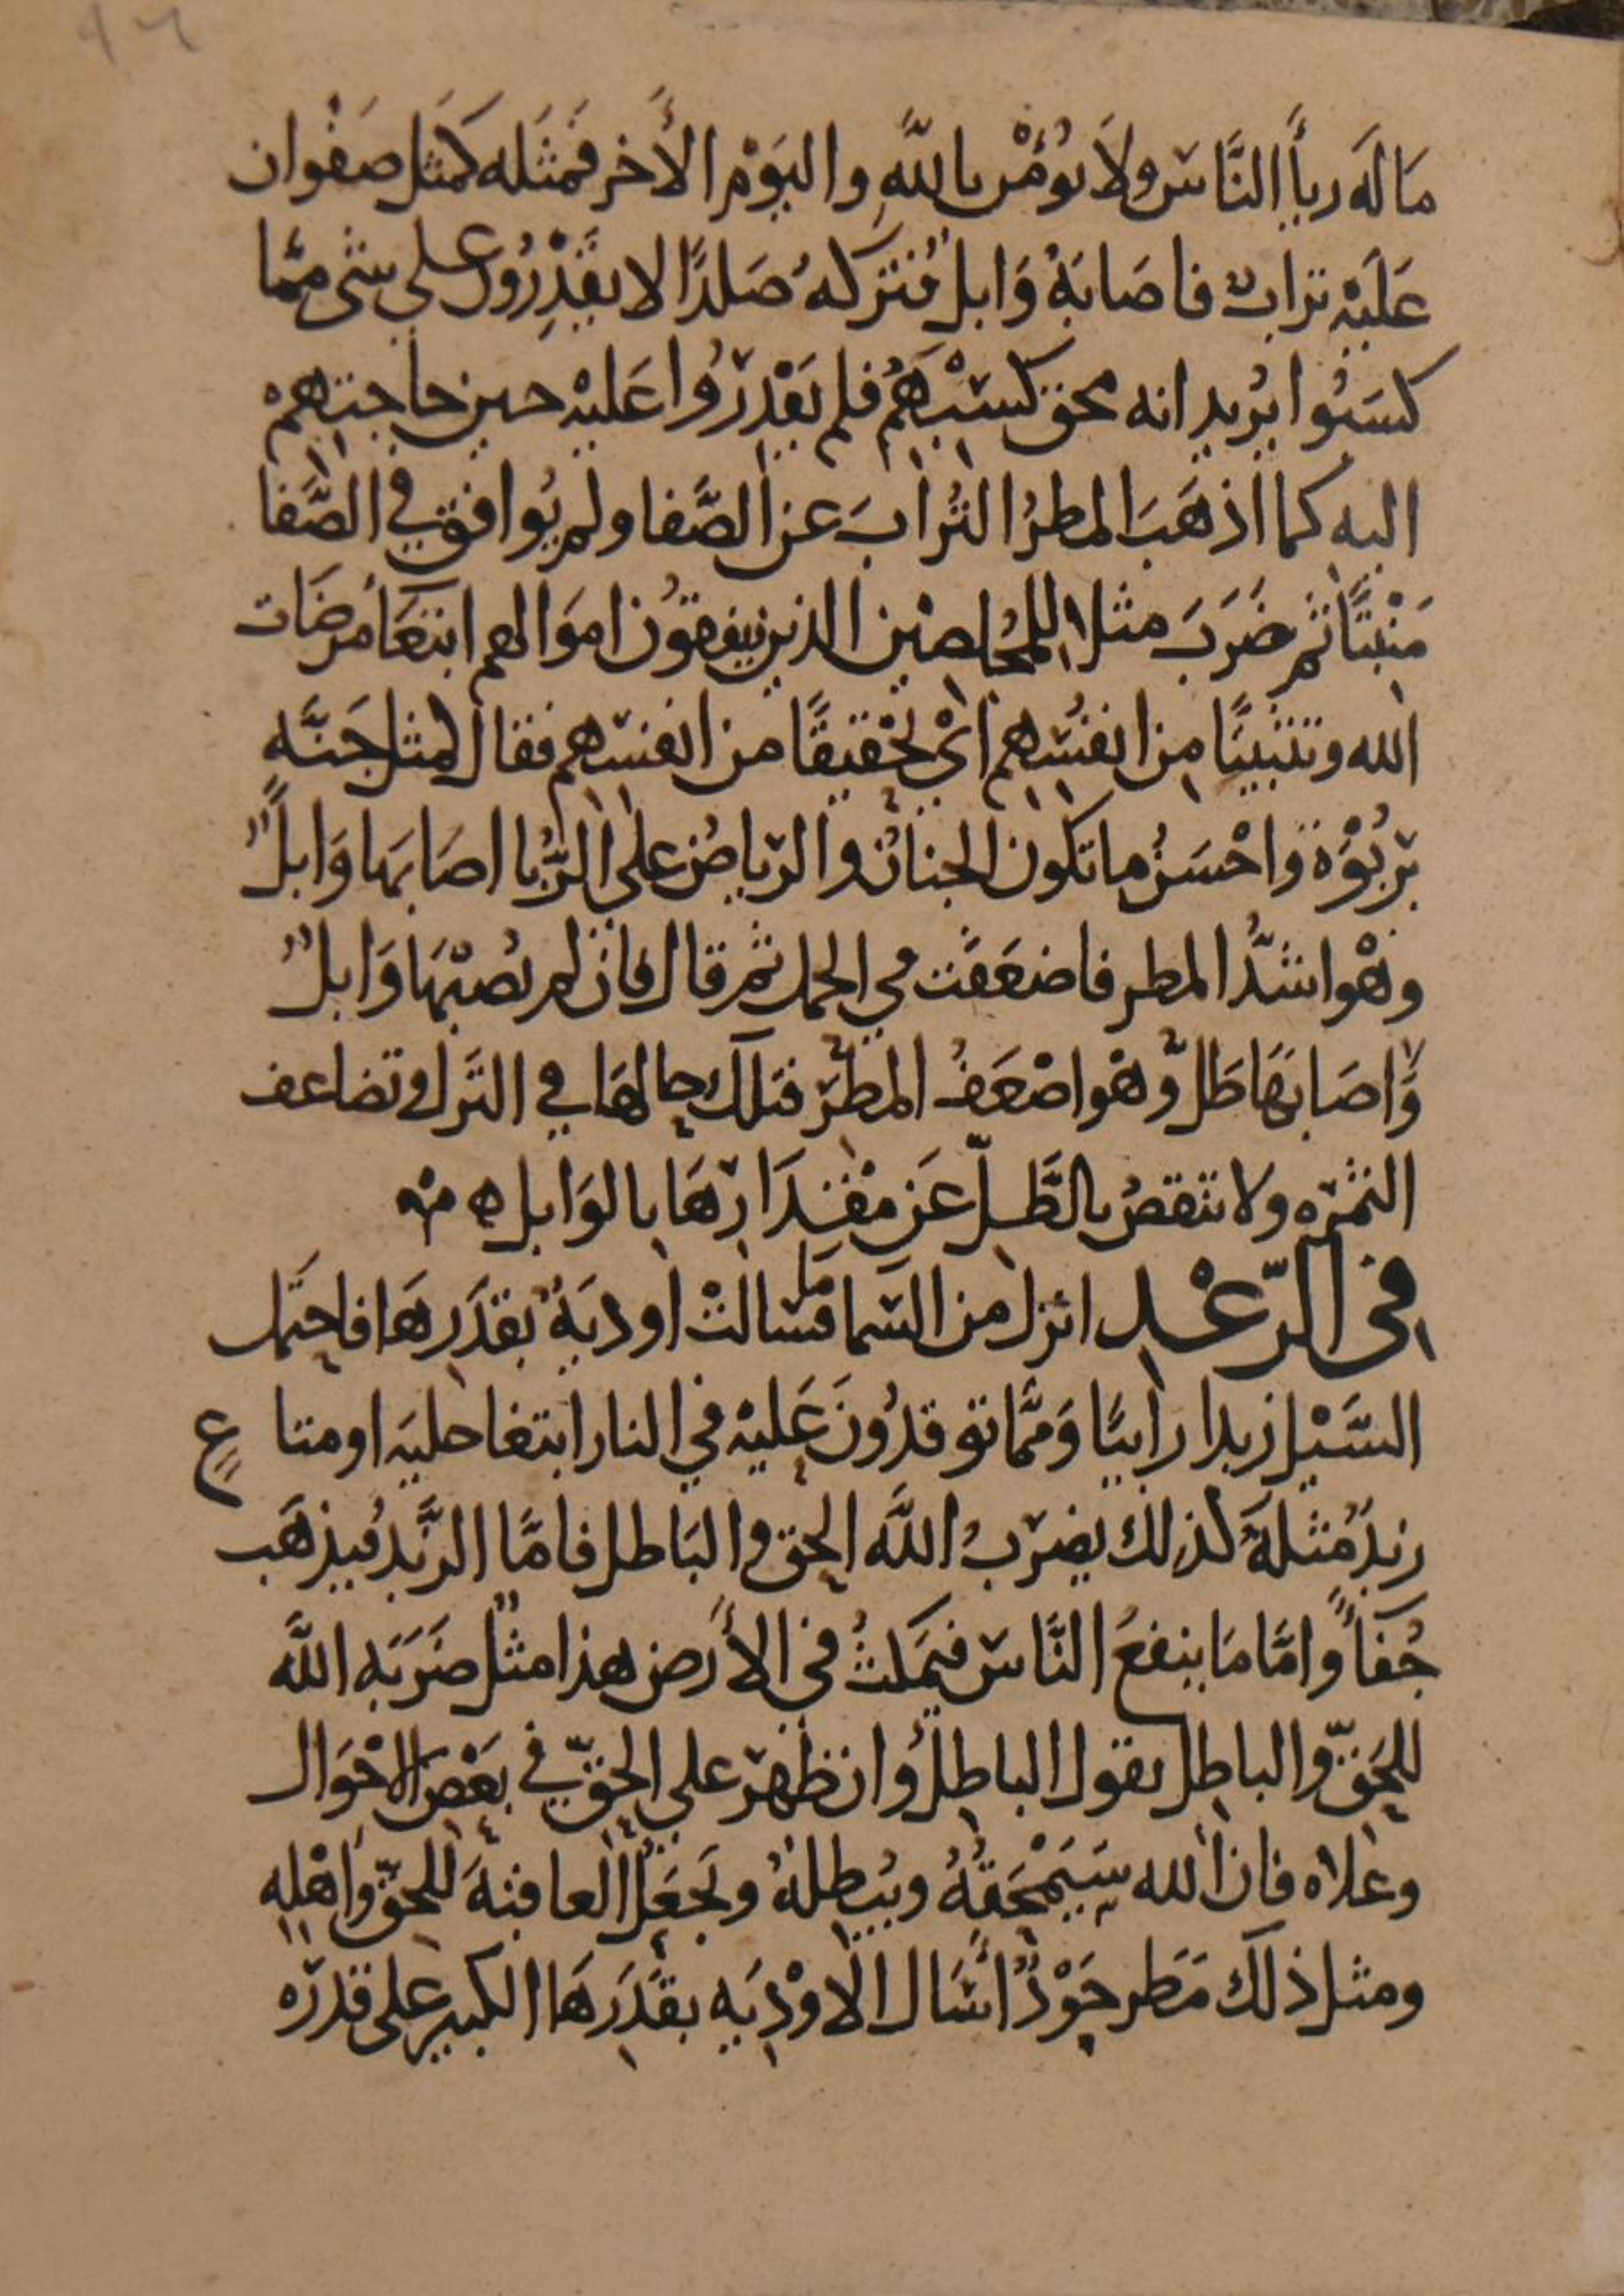 مَالَه رِيأَ النَّاسِ ولَا يُؤمْن بالله واليَوْمِ الأَخر فَمثَله كمَثل صَفْوان
عَلَيْه ترابٌ فاصَابَهُ وَابلٌ فَتَركهُ صَلدًا لا يقْدِرُونَ على شى مما
كسَبُوا يُريد انه محق كَسْبَهُم فلم يَقْدِرُوا عَليْه حين حاجتهم
اليه كما اذهَبَ المطرُ التُرابَ عن الصَّفا ولم يُوافق في الصَّفا
مَنْبتًا ثم ضَرَبَ مثلا للمُخلصيْن الذين ينفقوُن امَوالهم ابتغَا مرضَات
الله وتثبيتًا من انفُسهم اىْ تحْقيقًا من انفسهم فقال كمثل جَنَّهٍ
برَبُوْة واحْسَنُ ما تكون الجنانُ والرياضُ على الرُّبا اصَابَها وَابلٌ
وهْو اشدُّ المطر فاضعَفَت في الحمل ثم قال فان لم يُصبْهَا وَابلٌ
وَاصَابهَا طَلٌّ وهْو اضْعَفُ المطر فتلك حالهَا في النزل وتضاعف
الثمره ولا تنقصُ بالطَّلّ عَن مقْدَارهَا بالوَابل ه منه
في الرّعْد انزل من السما مَا فسَالتْ اوديَهٌ بقدَرهَا فاحتمَل
السَّيْل زبدا رابيًا وَممَّا توقدُونَ عَليْه في النار ابتغا حليَه اومتاعٍ
زبدٌ مُثلهُ كذلك يضربُ اللَّه الحق والبَاطل فامَّا الزَّبدُ فيذهَب
جُفأً وامَّا مَا ينفعُ النَّاس فيمكثُ في الأَرض هذا مثلٌ ضَرَبَه اللَّه
للحَقّ والباطل يقول الباطلُ وان ظهر علي الحقّ في بَعْض الاحْوَال
وعَلاه فان الله سَيَمْحَقُهُ ويُبطلهُ ويَجعَلُ العاقبَهَ للحقّ واهْله
ومثل ذلك مَطر جَوْدٌ اسَال الاوْدِيَه بقدَرهَا الكبير على قدره